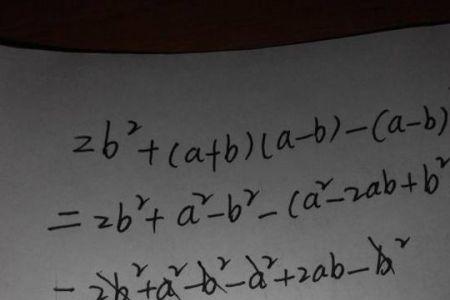 2b²+(a+b)(a-b)-(a-b)
=2b²+a²-b²-(a²-2ab+b²
=2b²+a²-b²-a²+2ab-b²